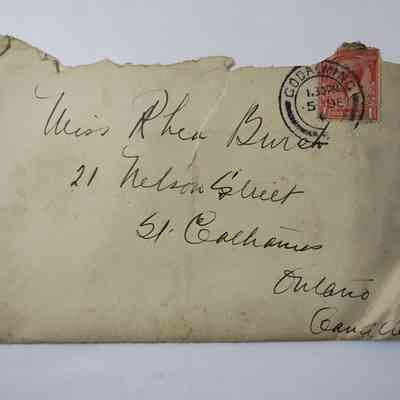 GODALMING
1.30PM
5 SP
Miss Rhea Burch
21 Nelson Street
St. Catharines
Ontario
Canada